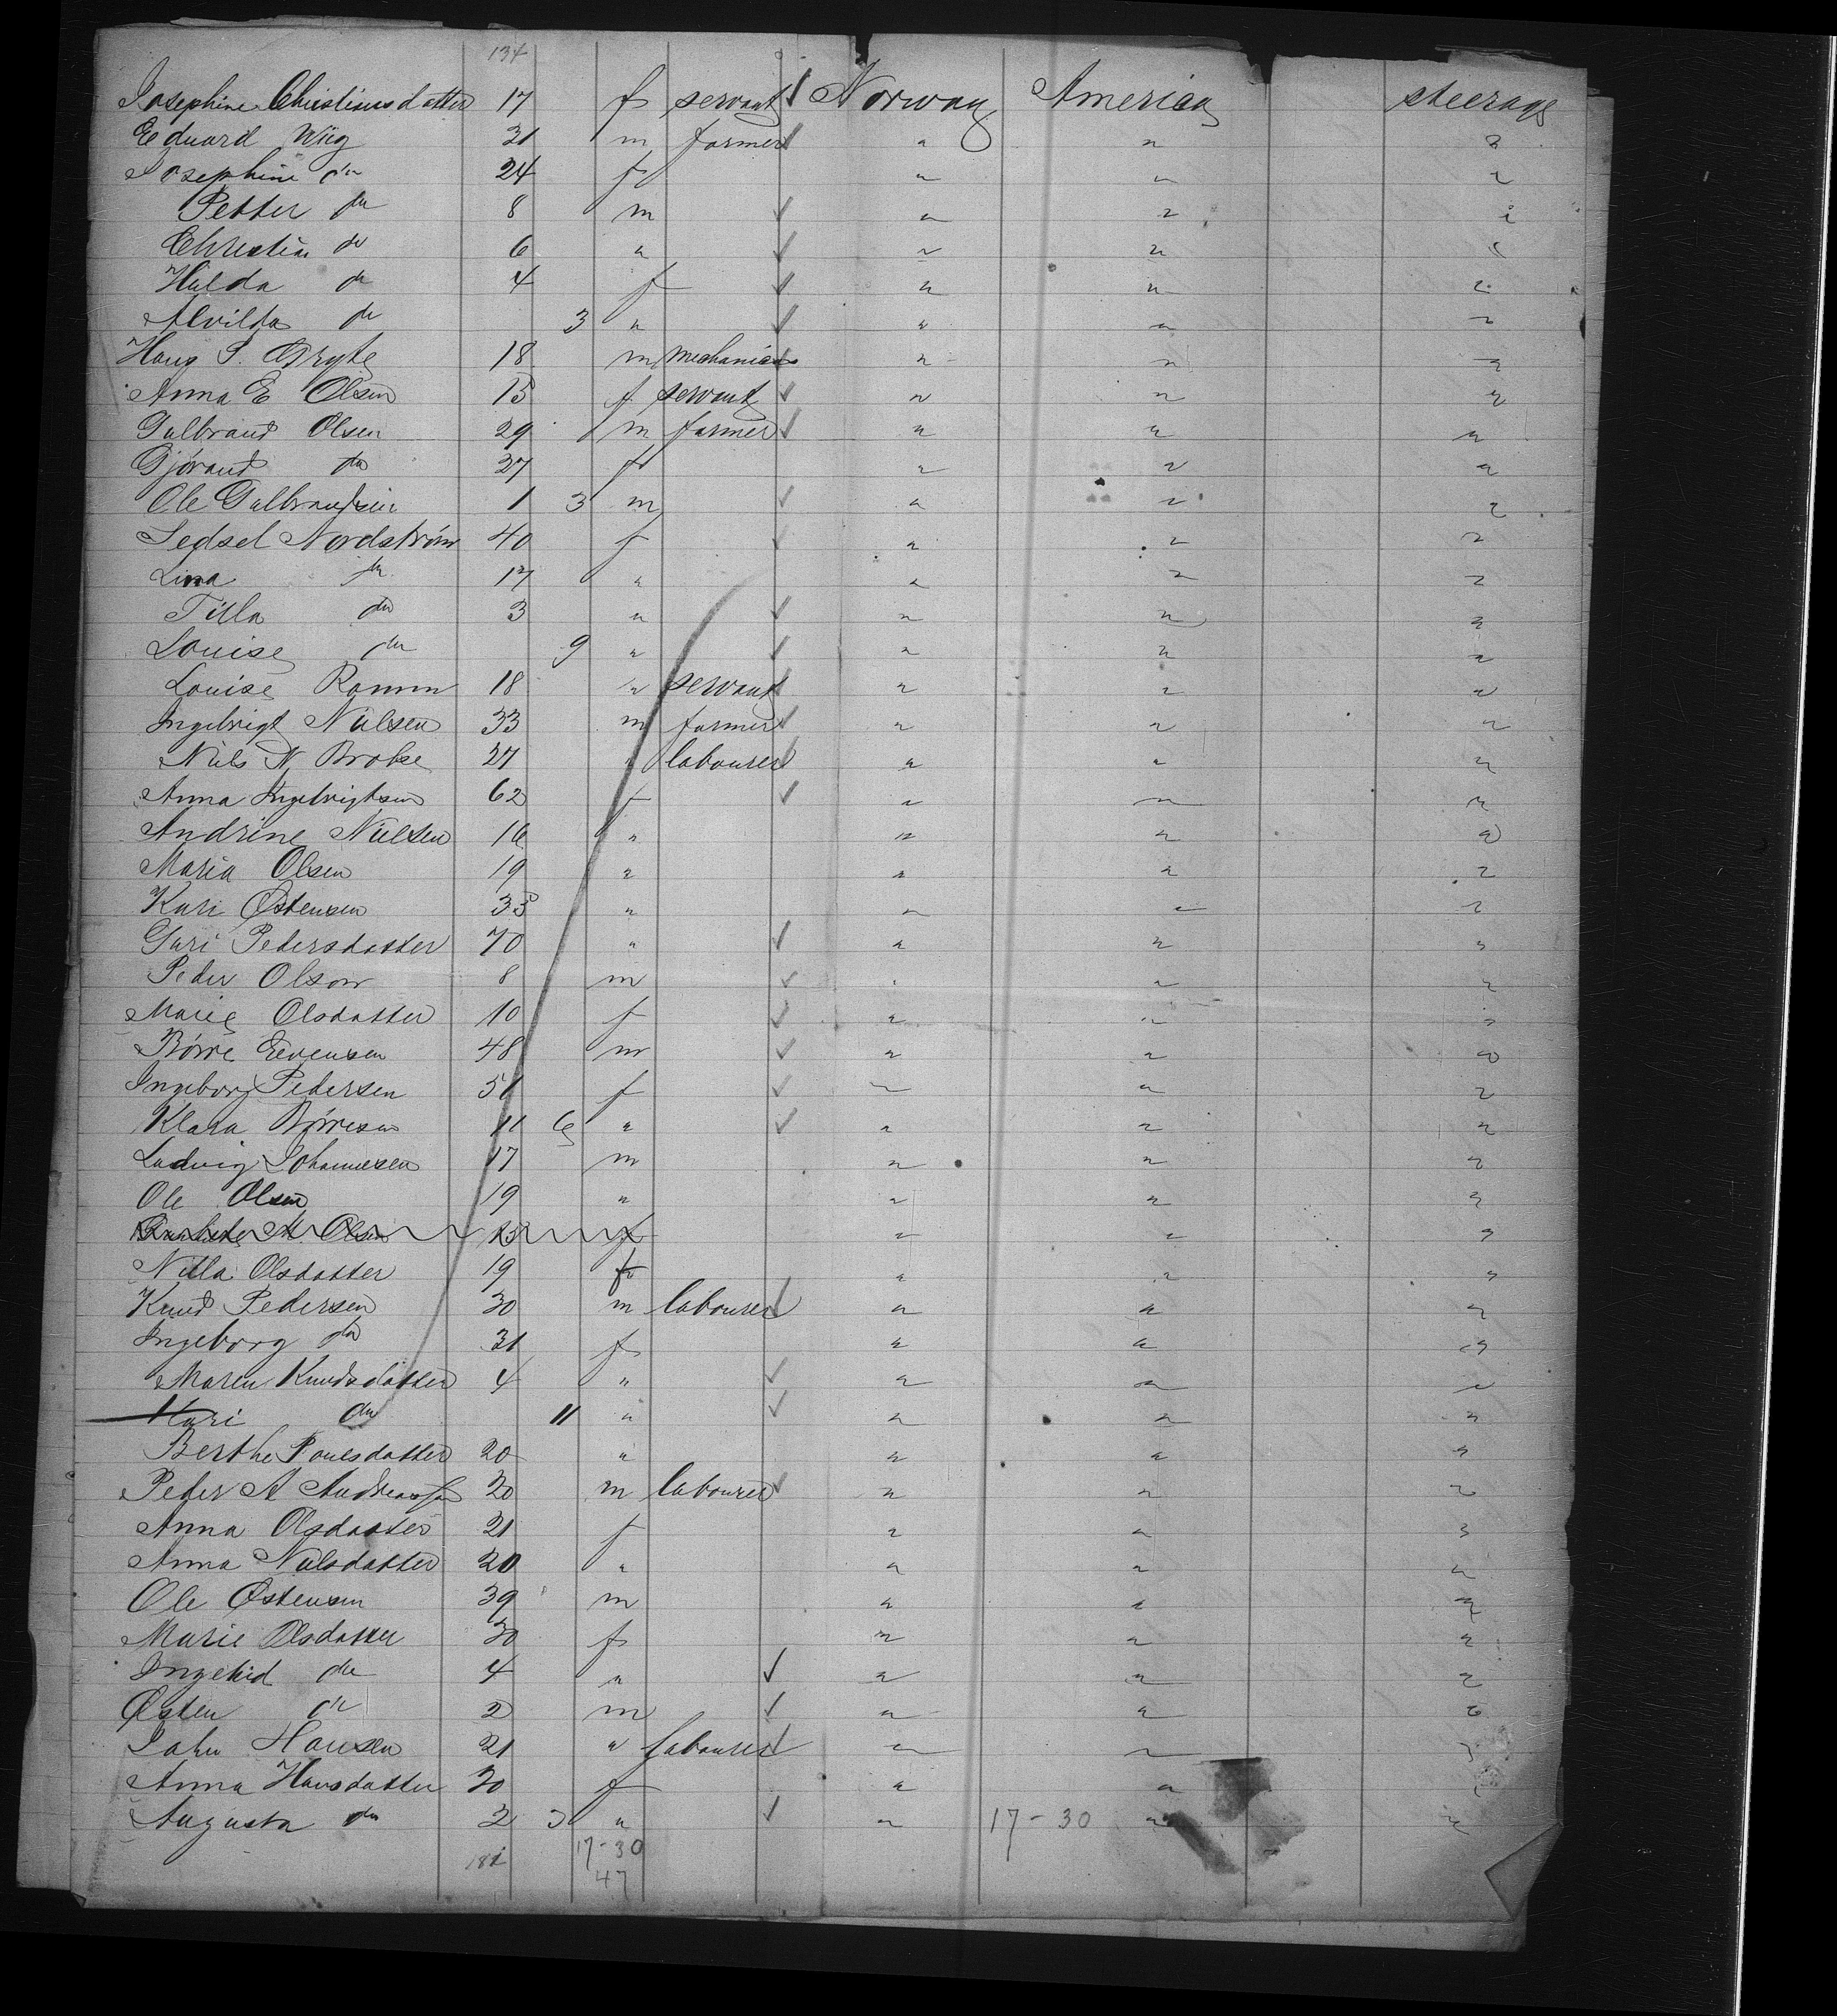 134
Josephine Christiansdatter 17 f servant ✓ Norway America steerage
Eduard Wiig 31 m farmer ✓ " " "
Josephine do 24 f " " "
Petter do 8 m ✓ " " "
Christian do 6 " ✓ " " "
Hulda do 4 f ✓ " " "
Alvilda do 3 " ✓ " " "
Hans P. 18 m mechanics ✓ " " "
Anna E Olsen 15 f servant ✓ " " "
Gulbrand Olsen 29 m farmer ✓ " " "
Gjörand do 27 f " " "
Ole Gulbrandsen 1 3 m ✓ " " "
Sedsel Nordström 40 f ✓ " " "
Lina do 17 " " " "
Tilla do 3 " ✓ " " "
Louise do 9 " ✓ " " "
Louise Ramm 18 " servant ✓ " " "
Ingebrigt Nielsen 33 m farmer ✓ " " "
Niels N. 27 " labourer ✓ " " "
Anna Ingebrigtsen 62 f ✓ " " "
Andrine Nielsen 16 " " " "
Maria Olsen 19 " " " "
Kari Østensen 33 " " " "
Guri Pedersdatter 70 " ✓ " " "
Peder Olson 8 m ✓ " " "
Marie Olsdatter 10 f ✓ " " "
Börre Evensen 48 m ✓ " " "
Ingeborg Pedersen 51 f ✓ " " "
Klara Börresen 11 6 " ✓ " " "
Ludvig Johannesen 17 m " " "
Ole Olsen 19 " " " "
M. Olsen 15 f " " "
Nilla Olsdatter 19 f " " "
Knud Pedersen 30 m labourer ✓ " " "
Ingeborg do 31 f " " "
Maren Knudsdatter 4 " ✓ " " "
Kari do 11 " ✓ " " "
Berthe Poulsdatter 20 " " " "
Peder A Andreassen 20 m labourer ✓ " " "
Anna Olsdatter 21 f " " "
Anna Nielsdatter 20 " " " "
Ole Østensen 39 m " " "
Marie Olsdatter 30 f " " "
Ingebid do 4 " ✓ " " "
Østen do 2 m ✓ " " "
John Hansen 21 " labourer ✓ " " "
Anna Hansdatter 30 f " " "
Augusta do 2 3 " ✓ " 17-30 " "
181 17-30
47